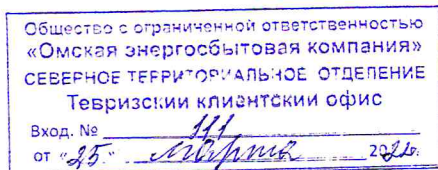 Общество с ограниченной ответственностью
«Омская энергосбытовая компания»
СЕВЕРНОЕ ТЕРРИТОРИАЛЬНОЕ ОТДЕЛЕНИЕ
Тевризский клиентский офис
Вход. № 111
от «25» марта 2022г.